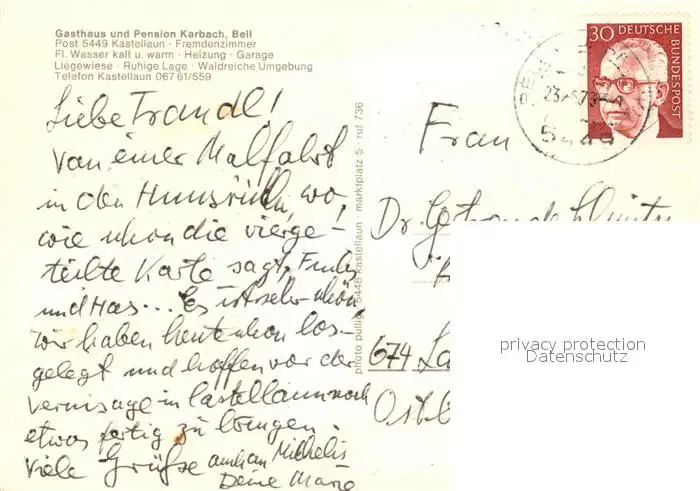 Gasthaus und Pension Karbach, Bell
Post 5449 Kastellaun · Fremdenzimmer
Fl. Wasser kalt u. warm · Heizung · Garage
Liegewiese · Ruhige Lage · Waldreiche Umgebung
Telefon Kastellaun 067 61/559
Liebe Traudl!
Von einer Malfahrt
in den Hunsrück, wo,
wie schon die vierge-
teilte Karte sagt, Fuchs
und Has... Es ist sehr schön
wir haben heute schon los-
gelegt und hoffen vor der
Vernisage in Castellaun noch
etwas fertig zu bringen.
Viele Grüße auch an Michelis
Deine Marie
photo pullig · 5448 kastellaun · marktplatz 5 · ruf 736
30 DEUTSCHE
BUNDESPOST
Frau
Dr.
674 La
Ostb
privacy protection
Datenschutz